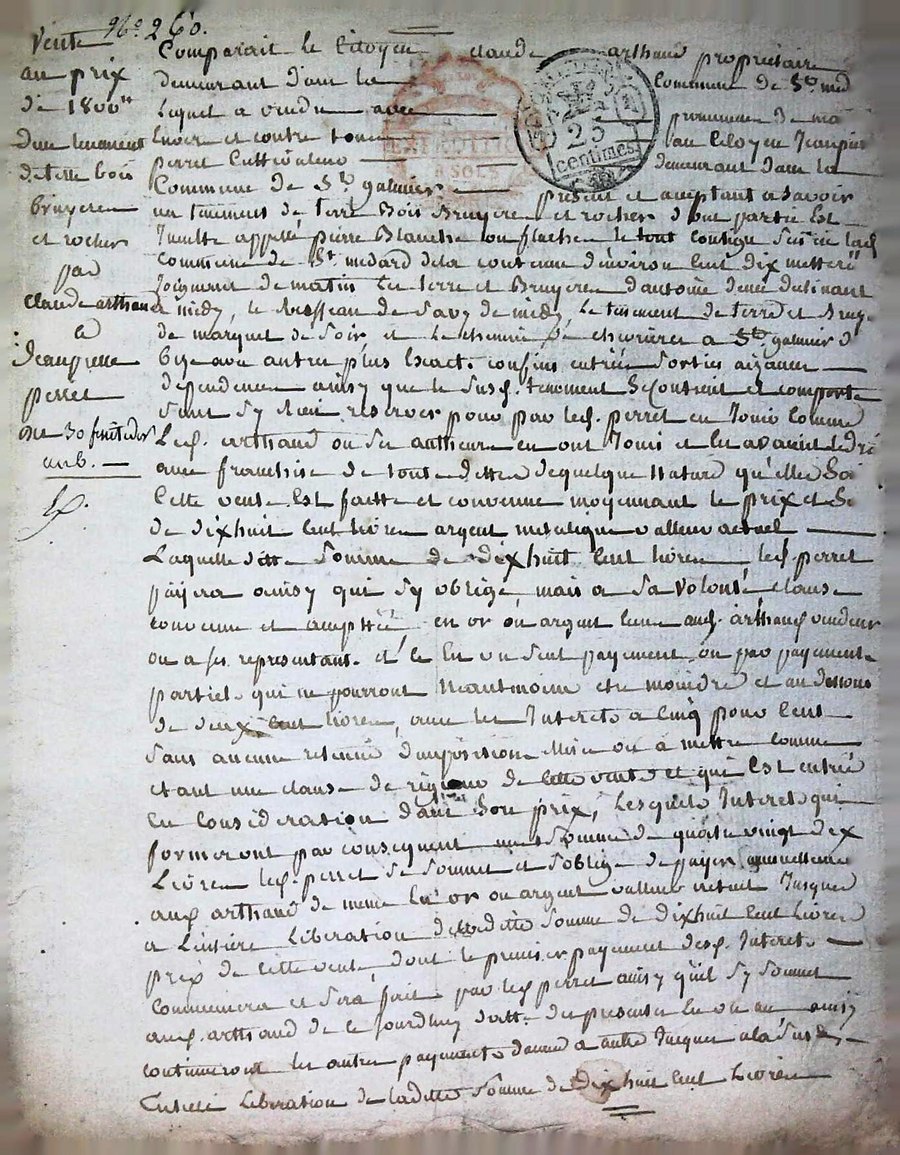 N.° 260.
Vente
au prix
de 1800
d'un tenement
de terre bois
bruyere
et rocher
par
Claude arthaud
a
Jeanpierre
perret
Du 30 fructidor
an 6. —
Comparait le Citoyen Claude arthaud propriétaire
demeurant dans la Commune de St. med
Lequel a vendu avec promesse de ma
Envers et contre tous au Citoyen Jeanpier
perret Cultivateur demeurant dans la
Commune de St. galmier present et acceptant a Savoir
un tenement de terre Bois Bruyere et rocher dont partie Est
Inculte appellé pierre Blanche ou flache le tout contigu situé
Commune de St. medard de la contenue d'environ Cent dix metter
Joignant de matin La terre et Bruyere d'antoine
a midy, le Ruisseau de de midy, Le tenement de terre et Bruy
de marquet de Soir, et Le chemin de chevrieres a St. galmier d
Bise avec autres plus Exact. confins entrées Sorties aizances
dependences ainsy que le Susd. tenement Se Contient et comporte
Sans Sy Rien reserver pour par led. perret en Jouir Comme
Led. arthaud ou Ses autheurs en ont Joui et
avec franchise de toute dette de quelque Nature qu'elle Soi
Cette vente Est faitte et convenue moyennant Le prix et So
de dixhuit Cent livres argent metalique valleur actuel
Laquelle ditte Somme de dixhuit Cent livres led. perret
payera ainsy qui Sy oblige, mais a Sa volonté, clause
convenue et acceptée en or ou argent aud. arthaud vendeur
ou a Ses representant. et ce En un Seul payement ou par payement
partiel. qui ne pourront Neantmoins etre moindre et au dessous
de deux Cent livres, avec les Interets a Cinq pour Cent
Sans aucune retenue d'imposition Mise ou a mettre comme
etant une clause de rigueur de Cette vente et qui Est entrée
En Consideration dans Son prix, Lesquels Interets qui
formeront par consequent une Somme de quatre vingt dix
Livres led. perret Se Soumet et S'oblige de payer annuellement
aud. arthaud de meme En or ou argent valleur Jusques
a L'entiere Liberation de Laditte Somme de dixhuit Cent Livres
prix de Cette vente, dont le premier payement desd. Interets
Commencera et Sera fait par led. perret ainsy qu'il Sy Soumet
aud. arthaud de ce Jourdhuy datte des presentes En un an ainsy
continueront les autres payements d'année a autre Jusques a la Susd.
Entiere Liberation de laditte Somme de dix huit Cent Livres
EXPEDITION
SOLS
25
centimes